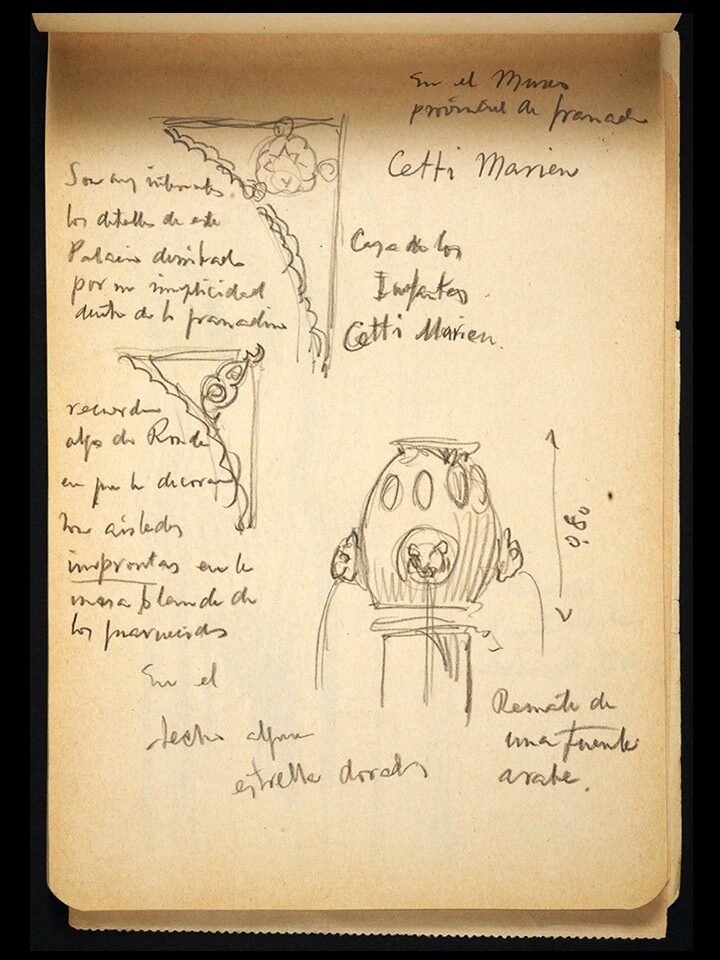 En el Museo
provincial de Granada
Cetti Marien
Casa de los
Infantes
Cetti Marien.
Son muy interesantes
los detalles de este
Palacio
por su simplicidad
dentro de lo granadino
recuerdan
algo de Ronda
en que la decoran
aisladas
improntas en la
masa blanda de
los
En el
techo alguna
estrella dorada
0,80
Remate de
una fuente
arabe.